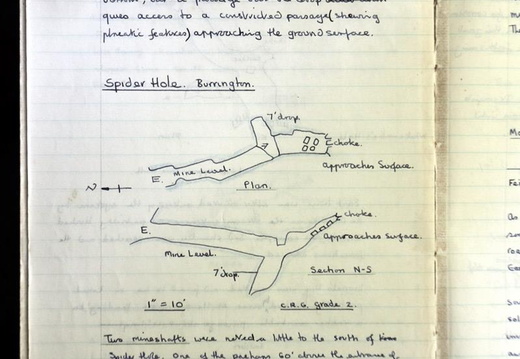 gives access to a constricted passage (shewing
phreatic features) approaching the ground surface.
Spider Hole. Burrington.
7' drop
choke.
approaches Surface.
Mine Level.
E.
Plan.
N
choke.
approaches Surface.
E.
Mine Level.
7' drop.
Section N-S
1" = 10'
C.R.G. Grade 2.
Two mineshafts were noted a little to the south of
Spider Hole. One of the perhaps 60' above the entrance of